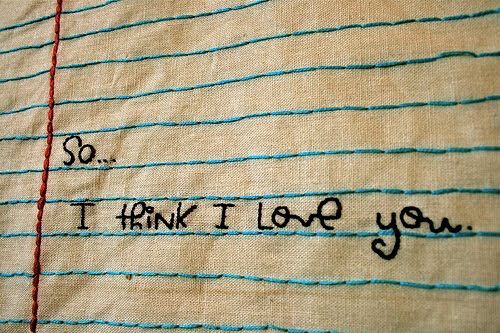 So...
I think I love you.